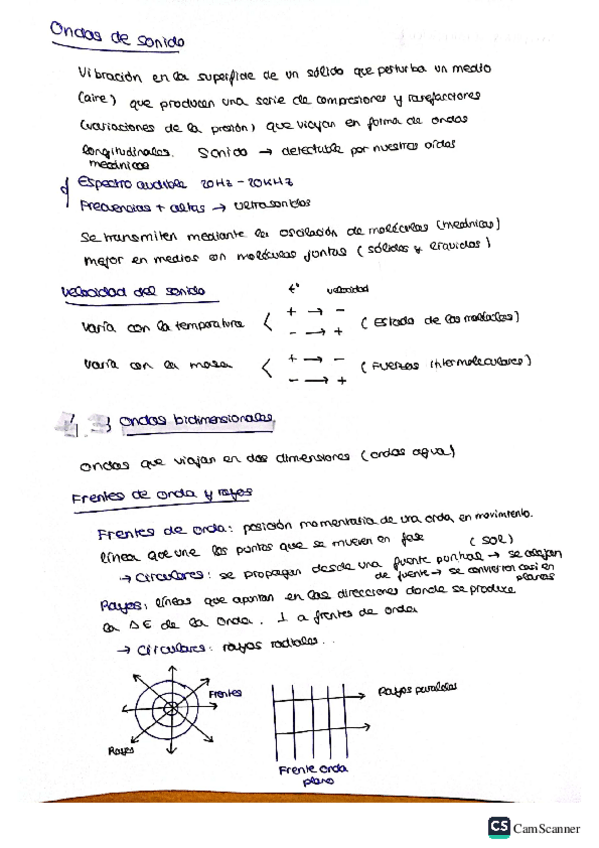 Ondas de sonido
Vibración en la superficie de un sólido que perturba un medio
(aire) que producen una serie de compresiones y rarefacciones
(variaciones de la presión) que viajan en forma de ondas
longitudinales. Sonido → detectable por nuestros oídos
mecánicas
Espectro audible 20Hz - 20KHz
Frecuencias + altas → ultrasonidos
Se transmiten mediante la oscilación de moléculas (mecánicas)
mejor en medios con moléculas juntas (sólidos y líquidos)
Velocidad del sonido
tº velocidad
+ → -
varía con la temperatura < (Estado de las moléculas)
- → +
+ → -
varía con la masa < (Fuerzas intermoleculares)
- → +
4.3 Ondas bidimensionales
Ondas que viajan en dos dimensiones (ondas agua)
Frentes de onda y rayos
Frentes de onda: posición momentanea de una onda en movimiento.
línea que une los puntos que se mueven en fase (SOL)
→ Circulares: se propagan desde una fuente puntual → se alejan
de fuente → se convierten casi en
planas
Rayos: líneas que apuntan en las direcciones donde se produce
la ΔE de la onda. ⊥ a frentes de onda
→ Circulares: rayos radiales..
Frentes
Rayos paralelos
Rayos
Frente onda
plano
CS CamScanner